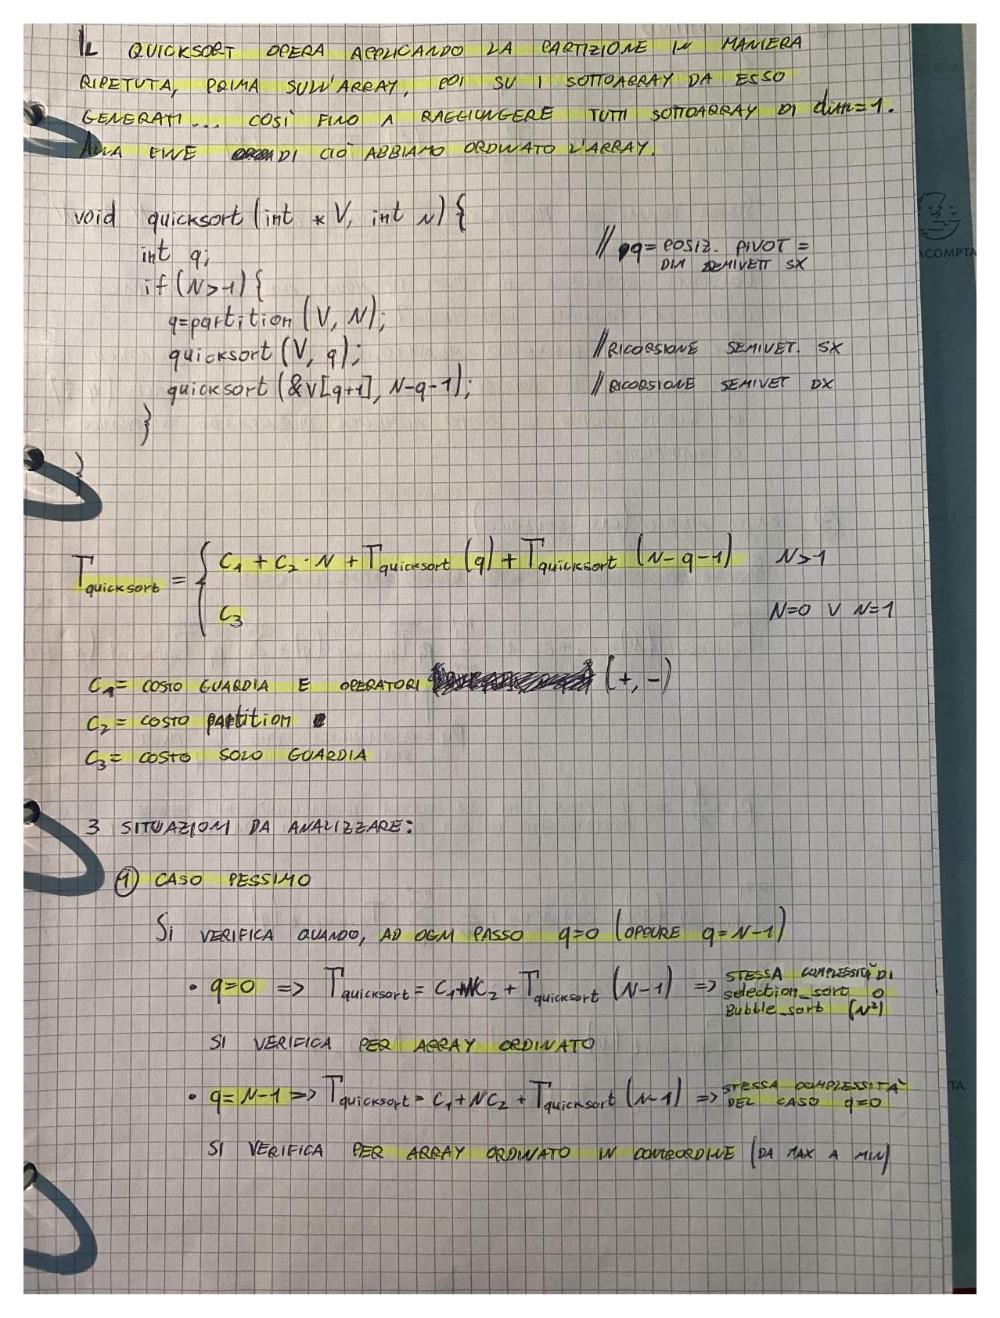 IL QUICKSORT OPERA APPLICANDO LA PARTIZIONE IN MANIERA
RIPETUTA, PRIMA SULL'ARRAY, POI SU I SOTTOARRAY DA ESSO
GENERATI... COSÌ FINO A RAGGIUNGERE TUTTI SOTTOARRAY DI dim=1.
ALLA FINE DI CIÒ ABBIAMO ORDINATO L'ARRAY.
void quicksort (int * V, int N) {
int q;
// q = POSIZ. PIVOT =
DIM SEMIVETT SX
if (N>1) {
q=partition (V, N);
quicksort (V, q);
// RICORSIONE SEMIVET. SX
quicksort (&V[q+1], N-q-1);
// RICORSIONE SEMIVET DX
}
}
Tquicksort = { C1 + C2 · N + Tquicksort (q) + Tquicksort (N-q-1) N>1
C3 N=0 V N=1
C1 = COSTO GUARDIA E OPERATORI (+, -)
C2 = COSTO partition
C3 = COSTO SOLO GUARDIA
3 SITUAZIONI DA ANALIZZARE:
1 CASO PESSIMO
SI VERIFICA QUANDO, AD OGNI PASSO q=0 (OPPURE q=N-1)
• q=0 => Tquicksort = C1+NC2 + Tquicksort (N-1) => STESSA COMPLESSITÀ DI
selection_sort o
Bubble_sort (N²)
SI VERIFICA PER ARRAY ORDINATO
• q=N-1 => Tquicksort = C1+NC2 + Tquicksort (N-1) => STESSA COMPLESSITÀ
DEL CASO q=0
SI VERIFICA PER ARRAY ORDINATO IN CONTRORDINE (DA MAX A MIN)